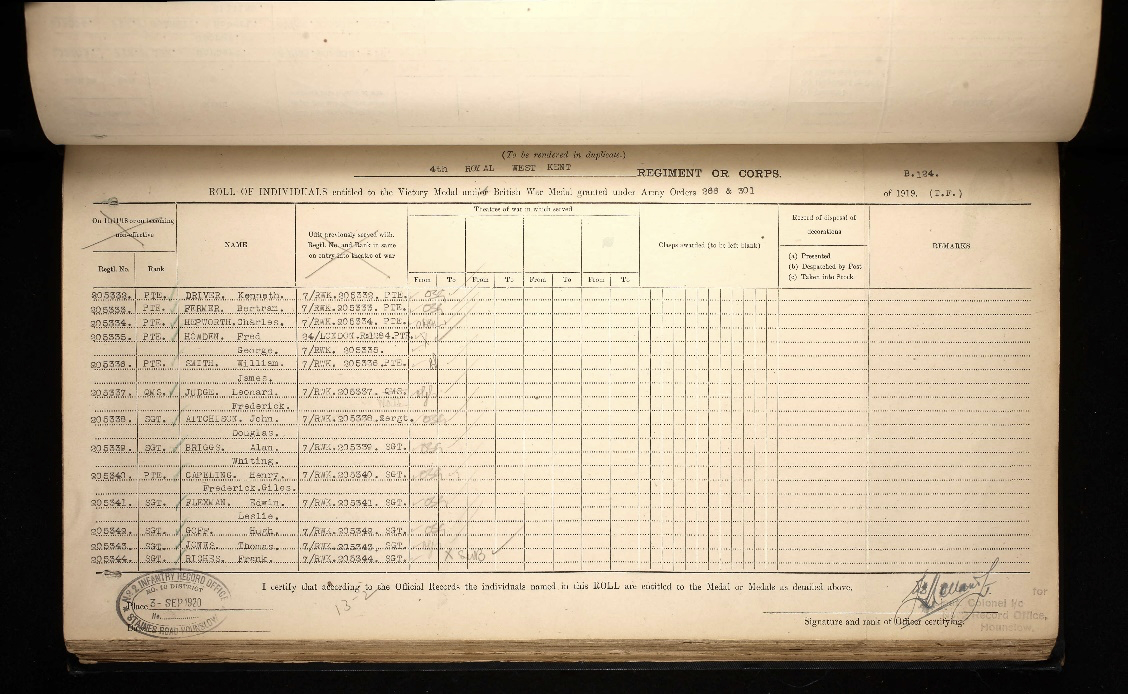 (To be rendered in duplicate.)
4th ROYAL WEST KENT REGIMENT OR CORPS. B.124.
ROLL OF INDIVIDUALS entitled to the Victory Medal and/or British War Medal granted under Army Orders 266 & 301 of 1919. (T.F.)
On 11/11/18 or on becoming non-effective
Regtl. No. Rank
NAME
Unit previously served with. Regtl. No. and Rank in same on entry into theatre of war
Theatres of war in which served
From To From To From To From To
Clasps awarded (to be left blank)
Record of disposal of decorations
(a) Presented
(b) Despatched by Post
(c) Taken into Stock
REMARKS
205332. PTE. DRIVER. Kenneth. 7/RWK.205332. PTE.
205333. PTE. Bertram. 7/RWK.205333. PTE.
205334. PTE. HEPWORTH. Charles. 7/RWK.205334. PTE.
205335. PTE. HOWDEN. Fred 24/LONDON. PTE.
George. 7/RWK. 205335.
205336. PTE. SMITH. William. 7/RWK. 205336. PTE.
James.
205337. QMS. JUDGE. Leonard. 7/RWK.205337. QMS.
Frederick.
205338. SGT. AITCHISON. John. 7/RWK.205338.
Douglas.
205339. SGT. BRIGGS. Alan. 7/RWK.205339. SGT.
Whiting.
205340. PTE. Henry. 7/RWK.205340. SGT.
Frederick.Giles.
205341. SGT. FLEXMAN. Edwin. 7/RWK.205341. SGT.
Leslie.
205342. SGT. GOFF. Hugh. 7/RWK.205342. SGT.
205343. SGT. Thomas. 7/RWK.205343. SGT.
205344. SGT. RICHES. Frank. 7/RWK.205344. SGT.
I certify that according to the Official Records the individuals named in this ROLL are entitled to the Medal or Medals as detailed above.
No. 2 INFANTRY RECORD OFFICE
NO. 10 DISTRICT
Place 3- SEP 1920
No.
STAINES ROAD HOUNSLOW
for
Colonel i/c
Record Office,
Signature and rank of Officer certifying.
Hounslow.